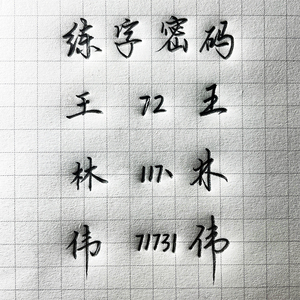 练字密码
王 72 王
林 117、林
伟 71731 伟